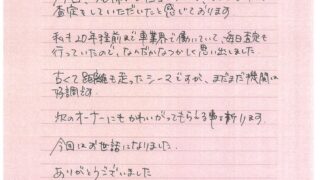 査定をしていただいたと感じております
私も20年程前まで車業界で働いていて、毎日査定も
行っていたので、なんだかなつかしく思い出しました
古くて距離も走ったシーマですが、まだまだ機関は
好調です
次のオーナーにもかわいがってもらえる事を祈ります
今回はお世話になりました
ありがとうございました